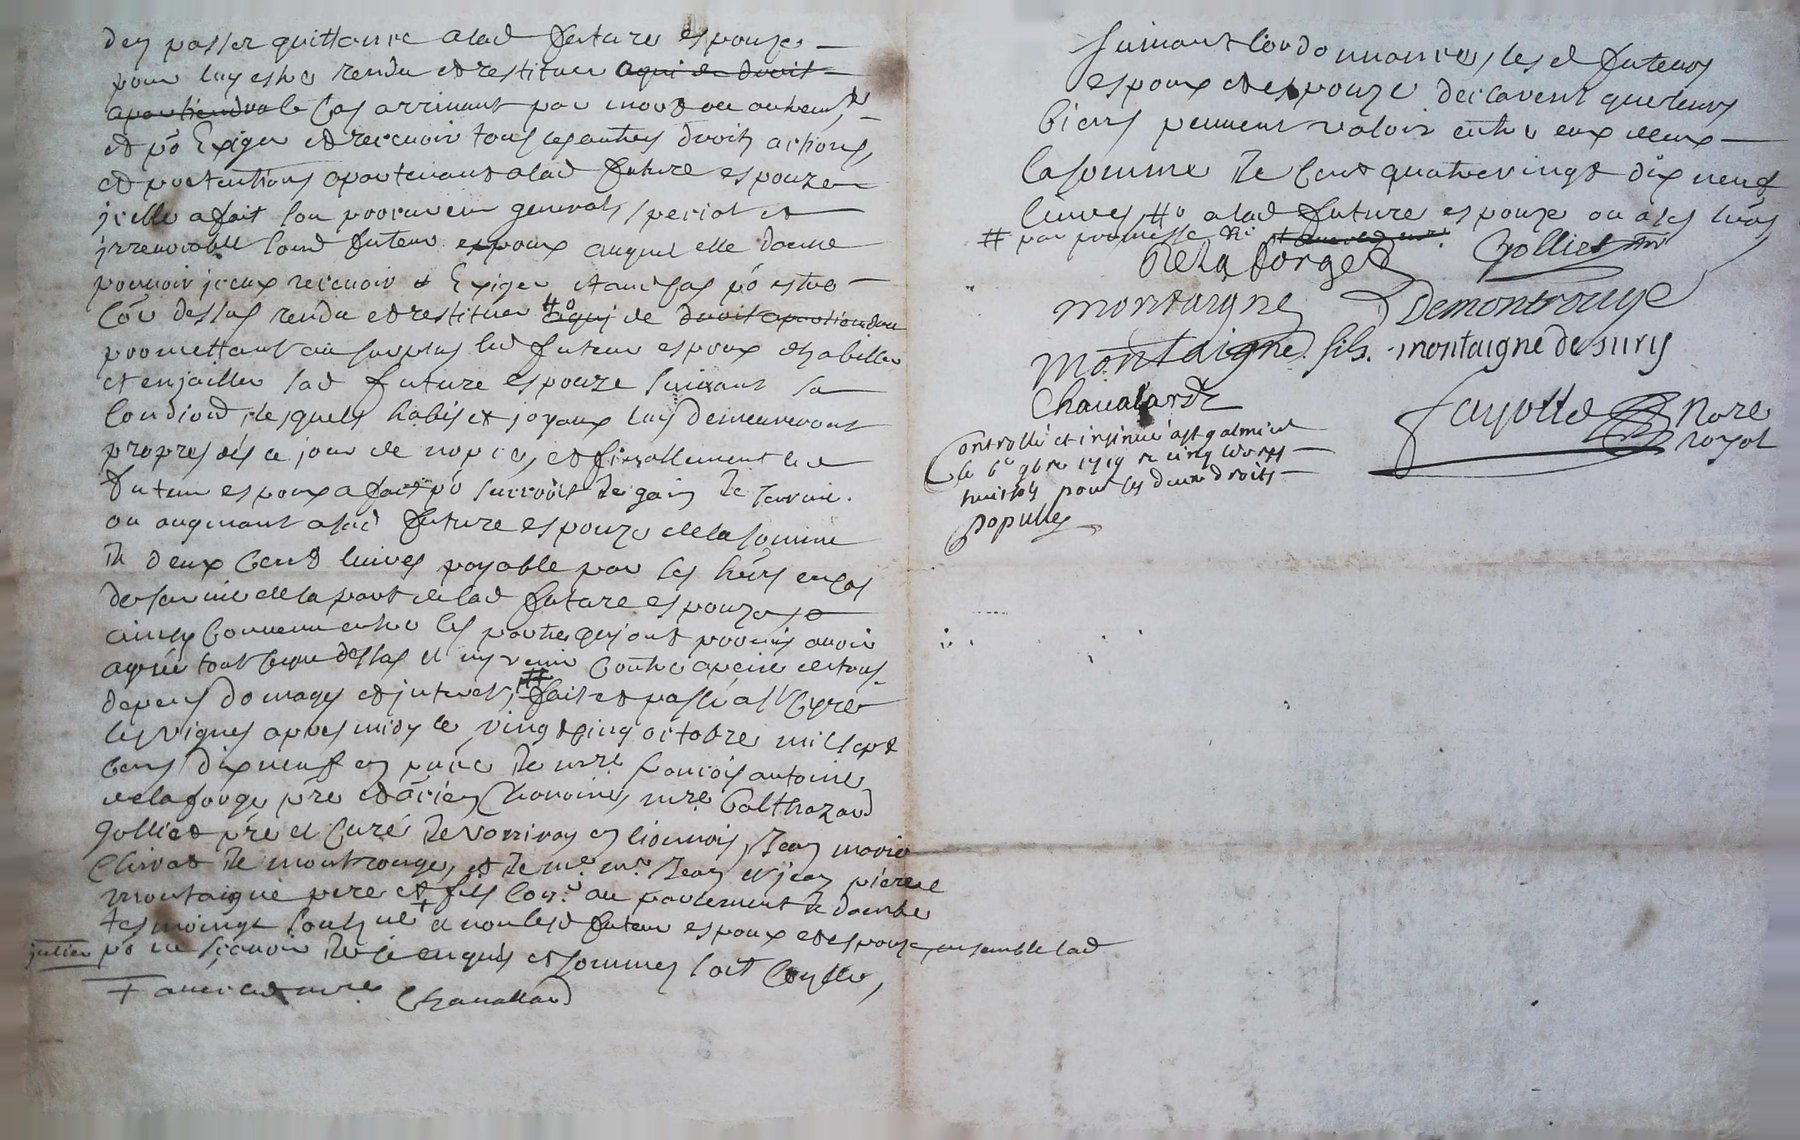 d'en passer quittance a lad future espouze
pour luy estre rendu et restituer a qui de droit
apartiendra le cas arrivant par mort ou autrem.t
et po exiger et recevoir tous les autres droits actions,
et pretentions apartenans a lad future espouze
jcelle a fait son procureur general special et
jrrevocable loud futeur espoux auquel elle donne
pouvoir jceux recevoir et exiger et aud cas po estre
co[m]e dessus rendu et restituer # a qui de droit apartiendra
promettant au surplus led futeur espoux d'habiller
et enjailler lad future espouze suivant sa
condiond lesquels habis et joyaux luy demeureront
propres dès ce jour de nopces, et finallement led
futeur espoux a fait po surcroit de gain de survie
ou augmant a lad future espouze de la somme
de deux cent livres payable par ses hers en cas
de survie de la part de lad future espouze
ainsy convenu entre les parties qui ont promis avoir
agréé tout ce que dessus et n'y venir contre a peine de tous
depens domages et jnterets, # fait et passé a St Cyre
les Vignes apres midy le vingt cinq octobre mil sept
cens dix neuf en pnce de mre francois antoine
de la forge pre et ancien chanoine, mre Balthazard
golliet pre et curé de Varrivay en lionnois, Jean marie
Chirat de montrouge, et de me me Jean et jean pierre
montaigne pere et fils con.rs au parlement de dombe
tesmoings soubsne + et non lesd futeur espoux et espouze ensemble lad
jullien po ne scavoir de ce enquis et sommes soit
+ Chavallard
suivant l'ordonnance, les d futeurs
espoux et espouze declarent que leurs
biens peuvent valoir entre eux deux
la somme de cent quatre vingt dix neuf
livres, # a lad future espouze ou a ses hers
# par promesse
De la forge Golliet
montaigne Demontrouge
montaigne fils. montaigne de suris
Chavalard
fayolle Nore
royal
Controllé et insinué a St galmier
le 6e 9bre 1719 R cinq livres
huit sols pour les deux droits
Populle